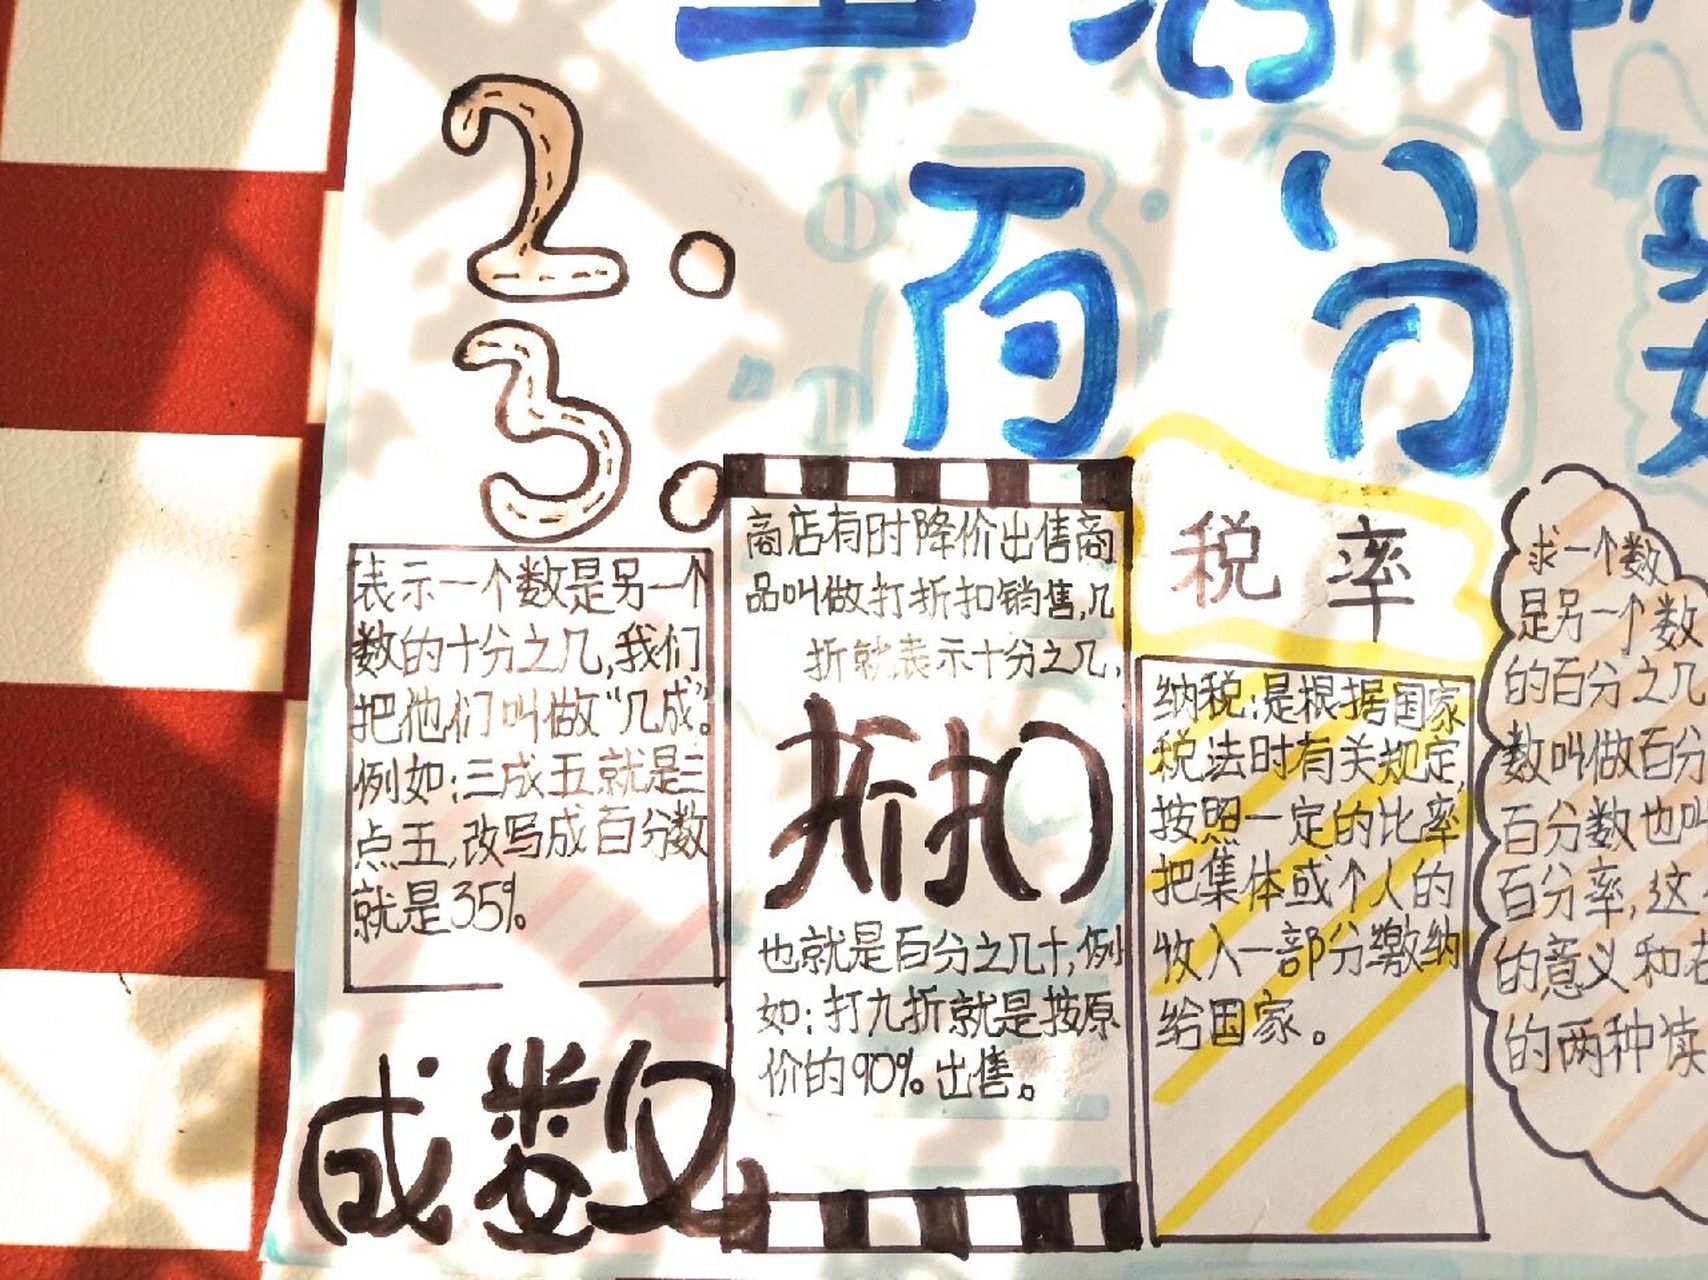 2.
百分数
3.
表示一个数是另一个
数的十分之几,我们
把他们叫做“几成”。
例如:三成五就是三
点五,改写成百分数
就是35%
成数
商店有时降价出售商
品叫做打折扣销售,几
折就表示十分之几,
折扣
也就是百分之几十,例
如:打九折就是按原
价的90%出售。
税率
纳税:是根据国家
税法时有关规定,
按照一定的比率
把集体或个人的
收入一部分缴纳
给国家。
求一个数
是另一个数
的百分之几
数叫做百分
百分数也叫
百分率,这
的意义和
的两种读